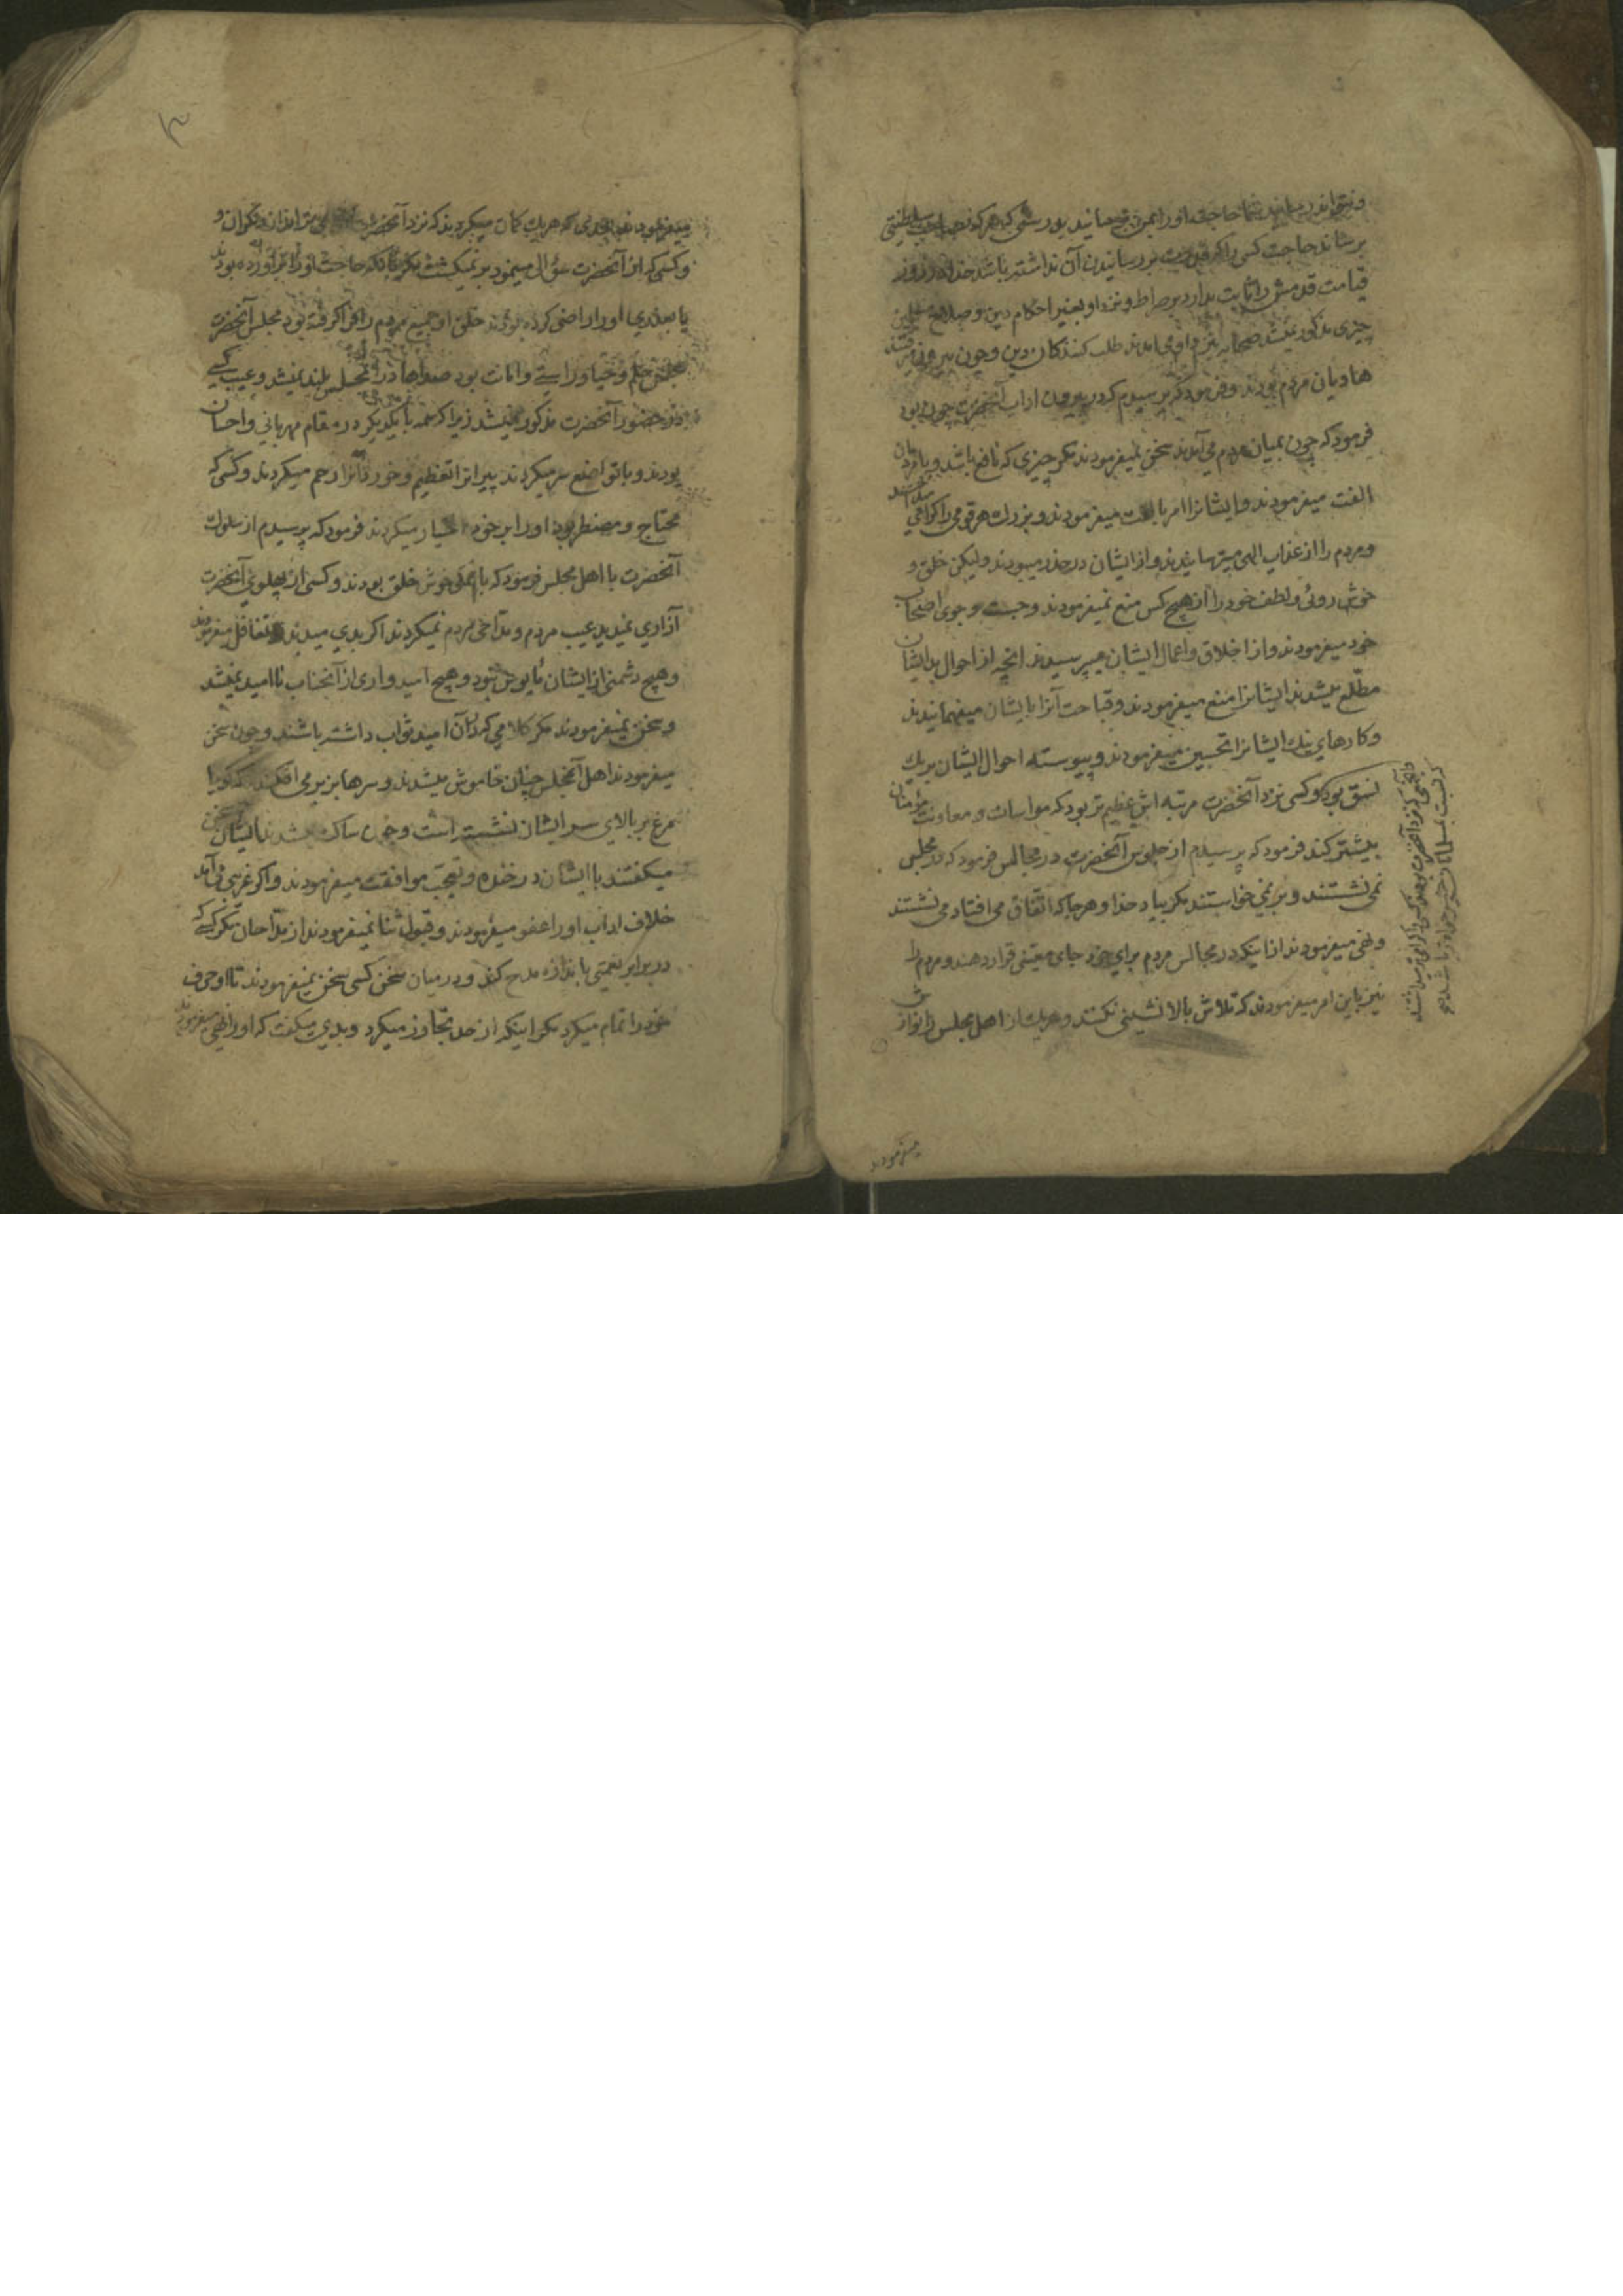 برساند حاجت کسی را که قدرت بر رسانیدن آن نداشته باشد خدا در روز
قیامت قدمش را ثابت بدارد بر صراط و نزد او بغیر احکام دین و صلاح
چیزی مذکور نمیشد صحابه نزد او می آمدند طلب کنندکان دین و چون بیرون میرفتند
هادیان مردم بودند و فرمود که پرسیدم که در بیرون اداب آنحضرت چون بود
فرمود که چون بمیان مردم می آمدند سخن نمیفرمودند مکر چیزی که نافع باشد و با مردمان
الفت میفرمودند و ایشانرا امر بالفت میفرمودند و بزرك هر قومی را کرامی میداشتند
و مردم را از عذاب الهی میترسانیدند و از ایشان در حذر میبودند ولیکن خلق و
خوش روئی و لطف خود را از هیچ کس منع نمیفرمودند و جست و جوی اصحاب
خود میفرمودند و از اخلاق و اعمال ایشان میپرسیدند آنچه از احوال بد ایشان
مطلع میشدند ایشانرا منع میفرمودند و قباحت آنرا بایشان میفهمانیدند
و کارهای نیك ایشانرا تحسین میفرمودند و پیوسته احوال ایشان بر یك
نسق بود و کسی نزد آنحضرت مرتبه اش عظیم تر بود که مواسات و معاونت مؤمنان
بیشتر کند فرمود که پرسیدم از جلوس آنحضرت در مجالس فرمود که در مجلس
نمی نشستند و برنمی خواستند مکر بیاد خدا و هر جا که اتفاق می افتاد می نشستند
و نهی میفرمودند از اینکه در مجالس مردم برای خود جای معینی قرار دهند و مردم را
نیز باین امر میفرمودند که تلاش بالا نشینی نکنند و هر یك از اهل مجلس را نوازش
که نسبت بمسلمانان خیر خواه تر باشد
میفرمودند
۳
میفرمودند بحدی که هر یك کمان میکردند که نزد آنحضرت
و کسی که از آنحضرت سؤالی مینمود بر نمیکشت مکر آنکه حاجت او را برآورده بودند
یا بعذری او را راضی کرده بودند خلق او جمیع مردم را فرا کرفته بود مجلس آنحضرت
مجلس حلم و حیا و راستی و امانت بود صداها در آن مجلس بلند نمیشد و عیب کسی
در حضور آنحضرت مذکور نمیشد زیرا که همه با یکدیکر در مقام مهربانی و احسان
بودند و با تواضع سر میکردند پیرانرا تعظیم و خوردانرا رحم میکردند و کسی که
محتاج و مضطر بود او را بر خود اختیار میکردند فرمود که پرسیدم از سلوك
آنحضرت با اهل مجلس فرمود که با همکی خوش خلق بودند و کسی از پهلوی آنحضرت
آزاری نمیدید عیب مردم و مداحی مردم نمیکردند اکر بدی میدیدند تغافل میفرمودند
و هیچ دشمنی از ایشان مأیوس نبود و هیچ امیدواری از آنجناب ناامید نمیشد
و سخن نمیفرمودند مکر کلامی که در آن امید ثواب داشته باشند و چون سخن
میفرمودند اهل آنمجلس چنان خاموش میشدند و سرها بزیر می افکندند که کویا
مرغ بر بالای سر ایشان نشسته است و چون ساکت میشدند ایشان سخن
میکفتند با ایشان در خنده و تعجب موافقت میفرمودند و اکر غریبی می آمد
خلاف اداب او را عفو میفرمودند و قبول ثنا نمیفرمودند از مداحان مکر کسی که
در برابر نعمتی باندازه مدح کند و در میان سخن کسی سخن نمیفرمودند تا او حرف
خود را تمام میکرد مکر اینکه از حد تجاوز میکرد و بدی میکفت که او را نهی میفرمودند